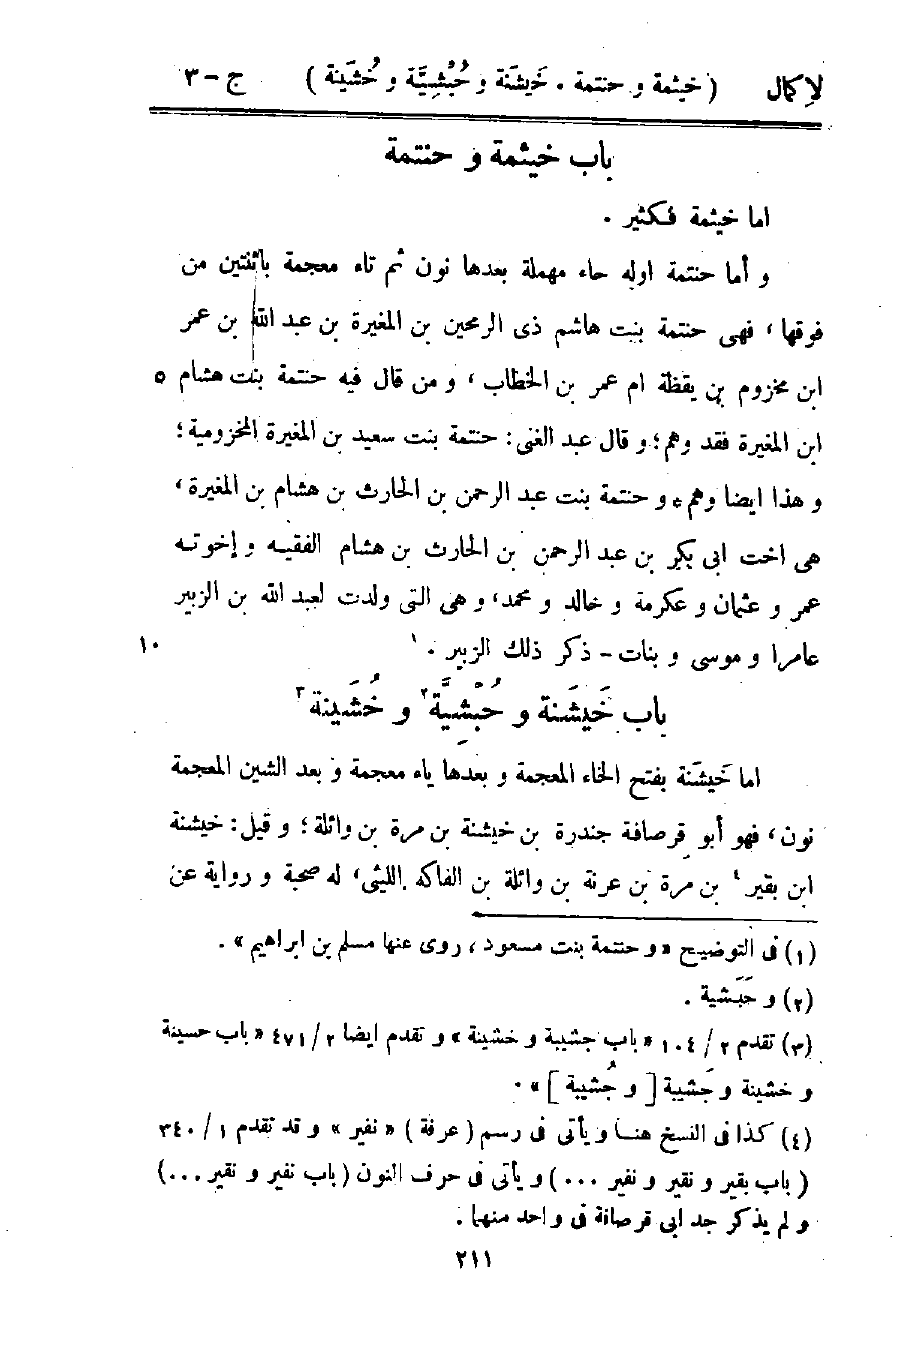 لإكمال ( خيثمة و حنتمة . خَيشَنَة و حُبْشِيَّة و خُشَينة ) ج - ٣
باب خيثمة و حنتمة
اما خيثمة فكثير .
و أما حنتمة اوله حاء مهملة بعدها نون ثم تاء معجمة باثنتين من
فوقها ، فهى حنتمة بنت هاشم ذى الرمحين بن المغيرة بن عبد الله بن عمر
ابن مخزوم بن يقظة ام عمر بن الخطاب ، و من قال فيه حنتمة بنت هشام ٥
ابن المغيرة فقد وهم ؛ و قال عبد الغنى : حنتمة بنت سعيد بن المغيرة المخزومية ؛
و هذا ايضا وهم * و حنتمة بنت عبد الرحمن بن الحارث بن هشام بن المغيرة ،
هى اخت ابى بكر بن عبد الرحمن بن الحارث بن هشام الفقيه و إخوته
عمر و عثمان و عكرمة و خالد و محمد ، و هى التى ولدت لعبد الله بن الزبير
عامرا و موسى و بنات - ذكر ذلك الزبير . ١ ١٠
باب خَيشَنة و حُبْشِيَّة ٢ و خُشَينة ٣
اما خَيشَنة بفتح الخاء المعجمة و بعدها ياء معجمة و بعد الشين المعجمة
نون ، فهو أبو قرصافة جندرة بن خيشنة بن مرة بن وائلة ؛ و قيل : خيشنة
ابن بقير ٤ بن مرة بن عرنة بن وائلة بن الفاكه الليثى ، له صحبة و رواية عن
(١) فى التوضيح « و حنتمة بنت مسعود ، روى عنها مسلم بن ابراهيم » .
(٢) و حَبَشية .
(٣) تقدم ٢ / ١٠٤ « باب جشيبة و خشينة » و تقدم ايضا ٢ / ٤٧١ « باب حسينة
و خشينة و جَشيبة [ و جُشيبة ] » .
(٤) كذا فى النسخ هنا و يأتى فى رسم ( عرفة ) « نفير » و قد تقدم ١ / ٣٤٠
( باب بقير و نقير و نفير ... ) و يأتى فى حرف النون ( باب نفير و نقير ... )
و لم يذكر جد ابى قرصافة فى واحد منهما .
٢١١